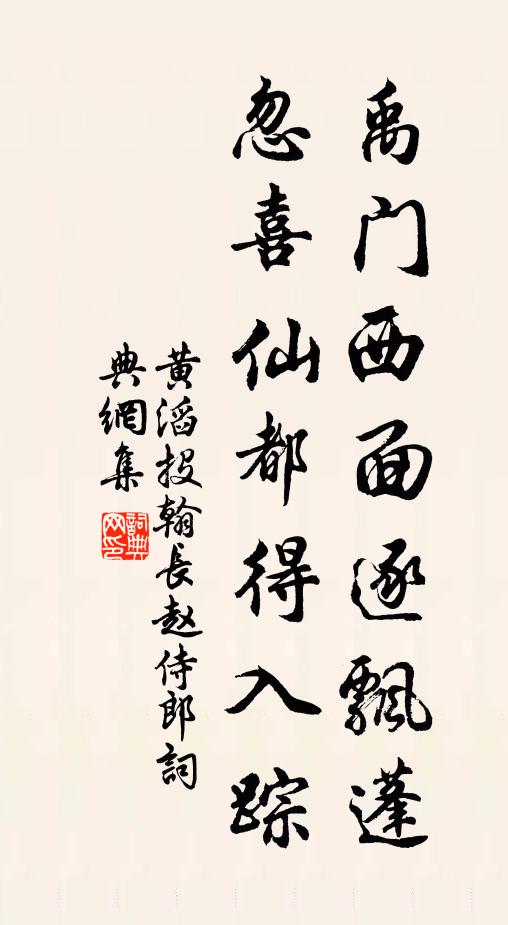 禹门西面逐飘蓬
忽喜仙都得入踪
黄滔投翰長赵侍郎詞
典網集
詞典
网印